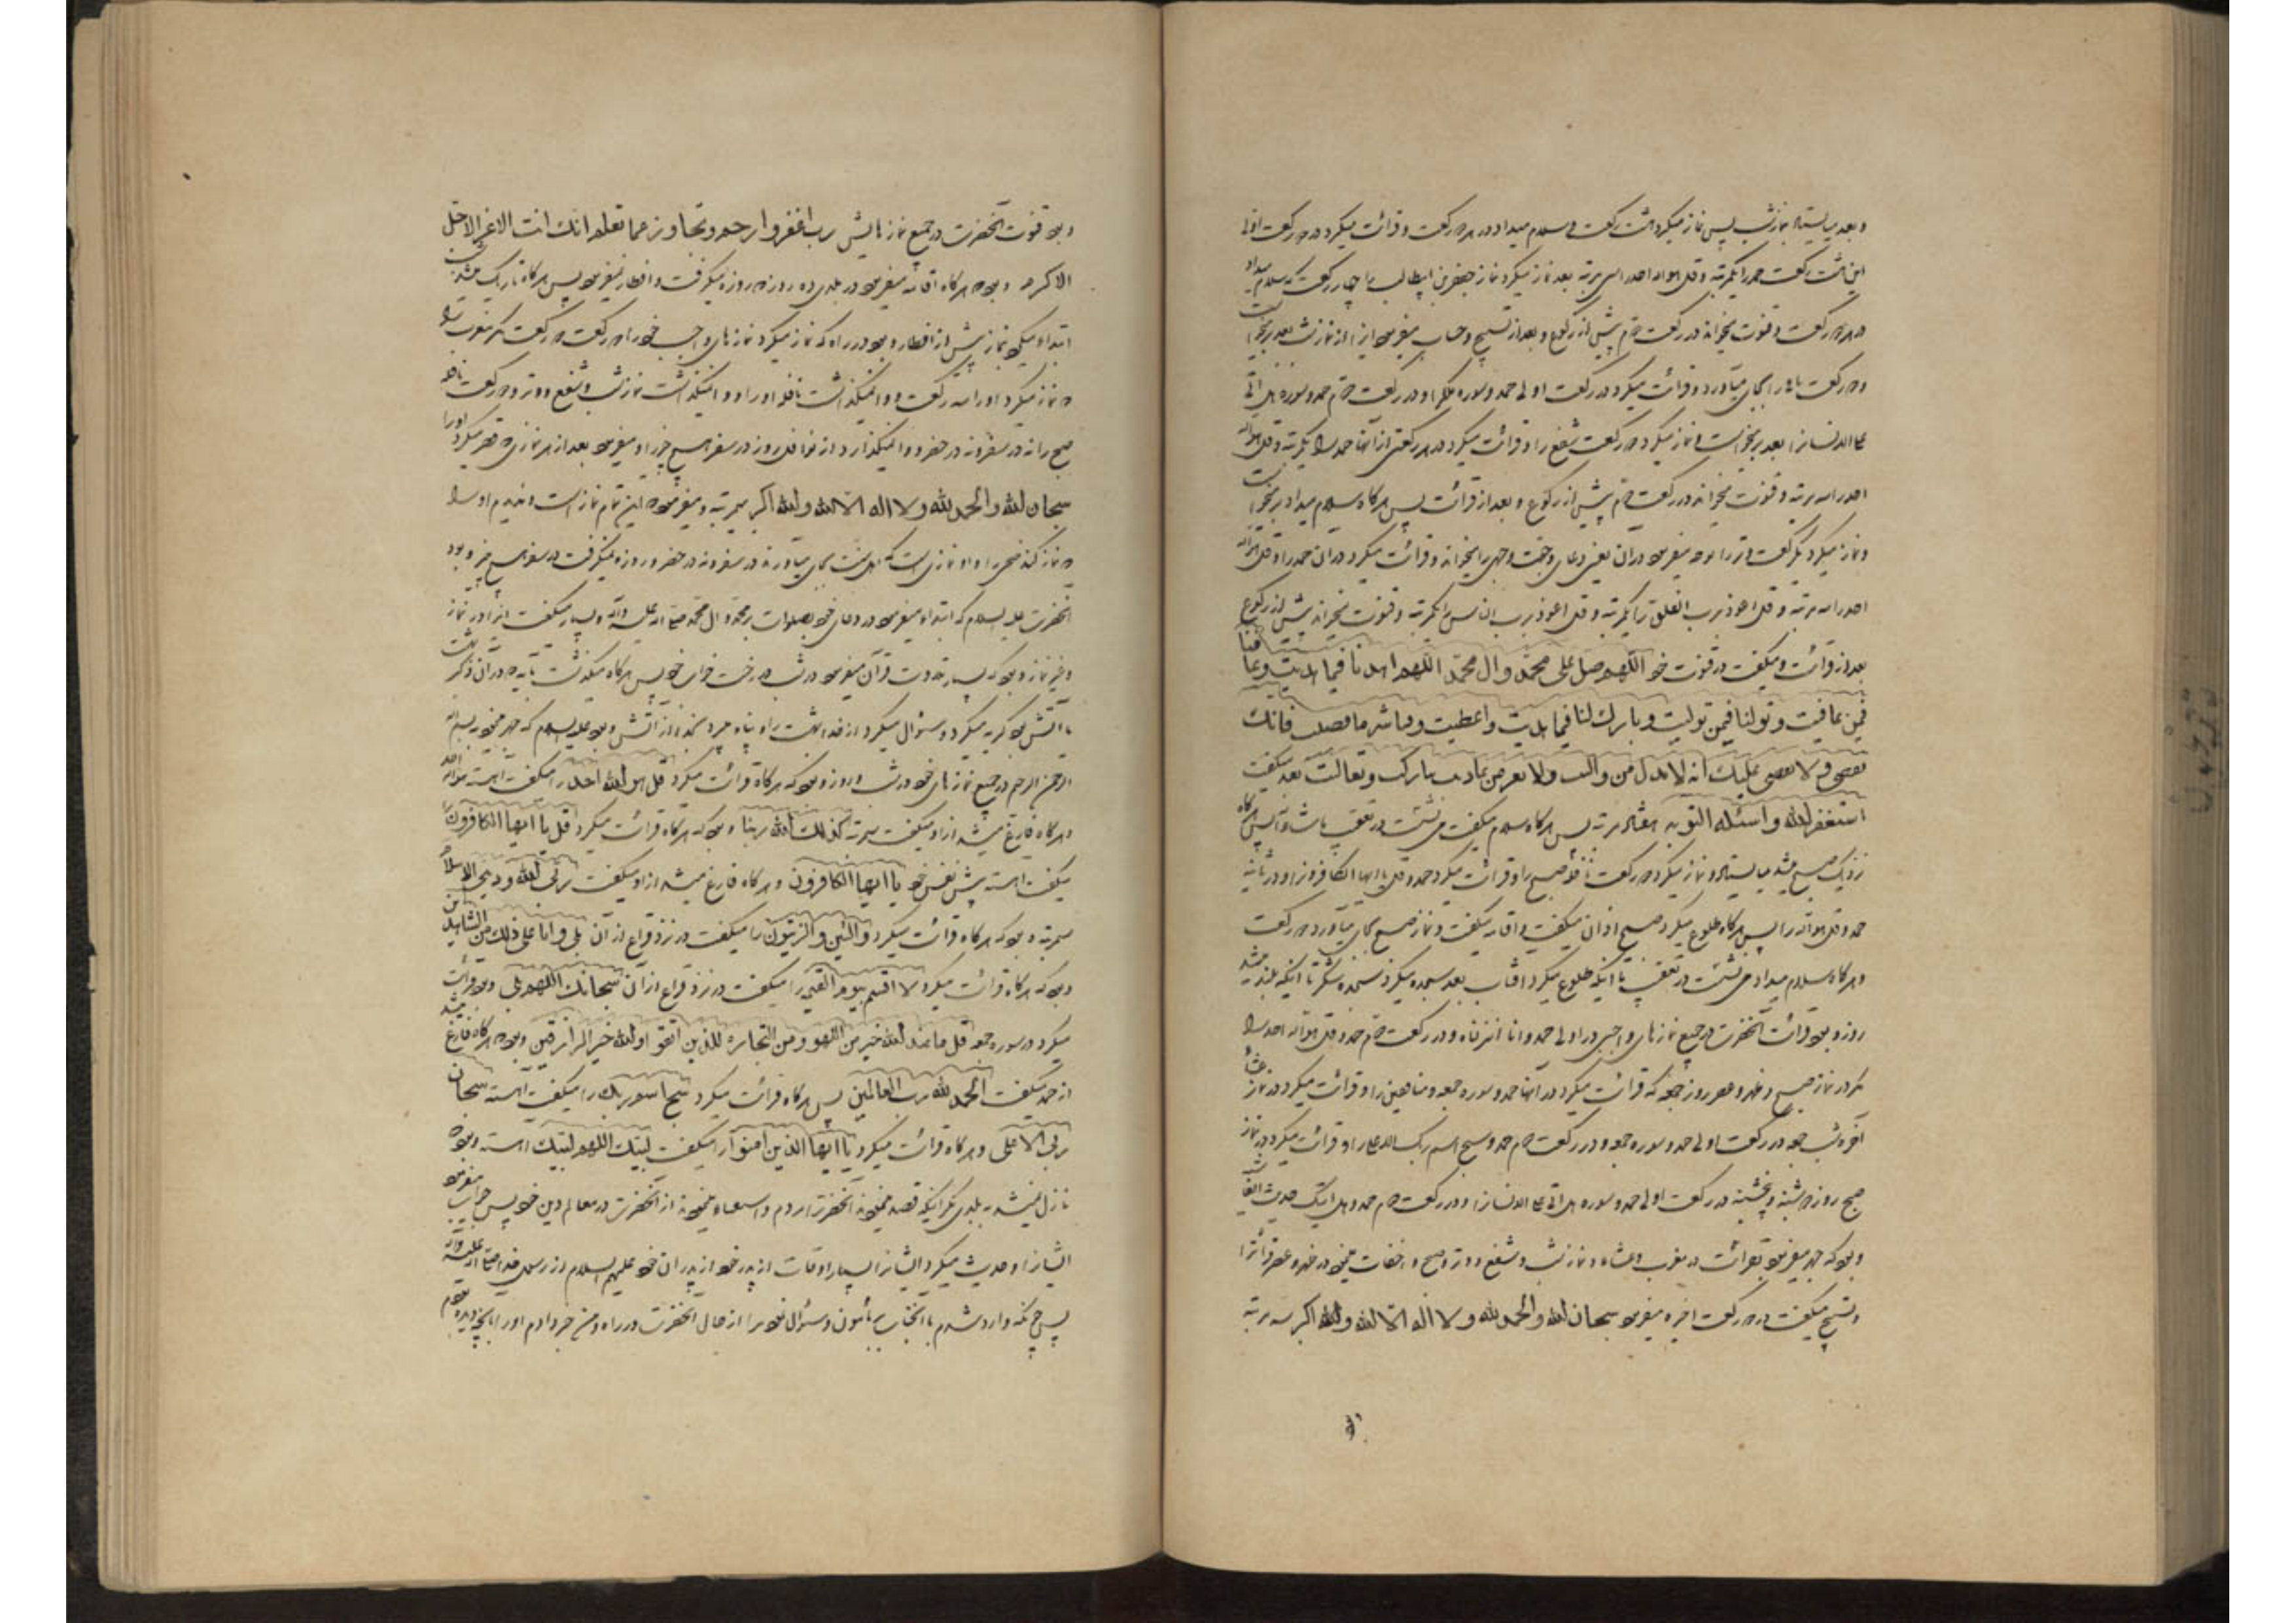 و بعد میایستاد بنماز شب پس نماز میکرد هشت رکعت و سلام میداد در هر دو رکعت و قرائت میکرد در دو رکعت اولی
این هشت رکعت حمد را یکمرتبه و قل هو الله احد را سی مرتبه بعد نماز میکرد نماز جعفر بن ابیطالب را چهار رکعت که سلام میداد
در هر دو رکعت و قنوت میخواند در رکعت دویم پیش از رکوع و بعد از تسبیح و حساب میفرمود اینرا از نماز شب بعد برمیخواست
و دو رکعت باقی را بجای میآورد و قرائت میکرد در رکعت اولی حمد و سوره ملک را و در رکعت دویم حمد و سوره هل اتی
علی الانسان را بعد برمیخواست و نماز میکرد دو رکعت شفع را و قرائت میکرد در هر رکعتی از آنها حمد را یکمرتبه و قل هو الله
احد را سه مرتبه و قنوت میخواند در رکعت دویم پیش از رکوع و بعد از قرائت پس هرگاه سلام میداد برمیخواست
و نماز میکرد یک رکعت وتر را میخواند و قرائت میکرد در آن حمد را و قل هو الله
احد را سه مرتبه و قل اعوذ برب الفلق را یکمرتبه و قل اعوذ برب الناس را یکمرتبه و قنوت میخواند پیش از رکوع
بعد از قرائت و میگفت در قنوت خود اللهم صل علی محمد و ال محمد اللهم اهدنا فیما هدیت و عافنا
فیمن عافیت و تولنا فیمن تولیت و بارک لنا فیما اعطیت و قنا شر ما قضیت فانک
تقضی و لا یقضی علیک انه لا یذل من والیت و لا یعز من عادیت تبارکت و تعالیت بعد میگفت
استغفر الله و اسئله التوبه هفتاد مرتبه پس هرگاه سلام میگفت می نشست در تعقیب پس هرگاه
نزدیک صبح میشد میایستاد و نماز میکرد دو رکعت نافله صبح را و قرائت میکرد حمد و قل یا ایها الکافرون را و در ثانیه
حمد و قل هو الله را پس هرگاه طلوع میکرد صبح اذان میگفت و اقامه میگفت و نماز صبح بجای میآورد دو رکعت
و هرگاه سلام میداد می نشست در تعقیب تا اینکه طلوع میکرد آفتاب بعد سجده میکرد سجده شکر تا اینکه بلند میشد
روز و بود قرائت آنحضرت در جمیع نمازهای واجبی در اولی حمد و انا انزلناه و در رکعت دویم حمد و قل هو الله احد را
مگر در نماز صبح و ظهر و عصر روز جمعه که قرائت میکرد در آنها حمد و سوره جمعه و منافقین را و قرائت میکرد در نماز عشاء
آخره شب جمعه در رکعت اولی حمد و سوره جمعه و در رکعت دویم حمد و سبح اسم ربک الاعلی را و قرائت میکرد در نماز
صبح روز دوشنبه و پنجشنبه در رکعت اولی حمد و سوره هل اتی علی الانسان را و در رکعت دویم حمد و هل اتیک حدیث الغاشیه
و بود که جهر میفرمود بقرائت در مغرب و عشاء و نماز شب و شفع و وتر و صبح و اخفات مینمود در ظهر و عصر قرائت را
و تسبیح میگفت در دو رکعت اخیره میفرمود سبحان الله و الحمد لله و لا اله الا الله و الله اکبر سه مرتبه
و بود قنوت آنحضرت در جمیع نمازهایش رب اغفر و ارحم و تجاوز عما تعلم انک انت الاعز الاجل
الاکرم و بود هرگاه اقامه میفرمود در بلدی ده روز روزه میگرفت و افطار نمیفرمود پس هرگاه تاریک میشد شب
ابتدا میکرد بنماز پیش از افطار و بود در راه که نماز میکرد نمازهای واجب خود را دو رکعت دو رکعت مگر مغرب را
نماز میکرد او را سه رکعت و وانمیگذاشت نافله او را و وانمیگذاشت نماز شب و شفع و وتر و دو رکعت نافله
صبح را نه در سفر و نه در حضر و از نوافل روز در سفر هیچ چیز را و میفرمود بعد از هر نمازی که قصر میکرد او را
سبحان الله و الحمد لله و لا اله الا الله و الله اکبر سی مرتبه و میفرمود این تمام نماز است و ندیدم او را
نماز کند ضحی را نه در سفر و نه در حضر و روزه نمیگرفت در سفر هیچ چیز و بود
آنحضرت علیه السلام که ابتدا میفرمود در دعای خود بصلوات بر محمد و ال محمد صلی الله علیه و آله و بسیار میگفت اینرا در نماز
و غیر نماز و بود که بسیار تلاوت قرآن میفرمود در شب در رخت خواب خود پس هرگاه میگذشت بآیه که در آن ذکر بهشت
یا آتش بود گریه میکرد و سئوال میکرد از خدا بهشت را و پناه میبرد بخدا از آتش و بود علیه السلام که جهر مینمود بسم الله
الرحمن الرحیم در جمیع نمازهای خود در شب و روز و بود که هرگاه قرائت میکرد قل هو الله احد را میگفت آهسته هو الله احد
و هرگاه فارغ میشد از او میگفت سه مرتبه کذلک الله ربنا و بود که هرگاه قرائت میکرد قل یا ایها الکافرون را
میگفت آهسته پیش نفس خود یا ایها الکافرون و هرگاه فارغ میشد از او میگفت ربی الله و دینی الاسلام
سه مرتبه و بود که هرگاه قرائت میکرد و التین و الزیتون را میگفت در نزد فراغ از آن بلی و انا علی ذلک من الشاهدین
و بود که هرگاه قرائت میکرد لا اقسم بیوم القیمه را میگفت در نزد فراغ از آن سبحانک اللهم بلی و بود قرائت
میکرد در سوره جمعه قل ما عند الله خیر من اللهو و من التجارة للذین اتقوا و الله خیر الرازقین و بود هرگاه فارغ میشد
از حمد میگفت الحمد لله رب العالمین پس هرگاه قرائت میکرد سبح اسم ربک را میگفت آهسته سبحان
ربی الاعلی و هرگاه قرائت میکرد یا ایها الذین آمنوا را میگفت لبیک اللهم لبیک آهسته و بود
نازل نمیشد به بلدی مگر اینکه قصد مینمودند آنحضرت را مردم و مینمودند از آنحضرت در معالم دین خود پس جواب میفرمود
ایشان را و حدیث میکرد ایشان را بسیار اوقات از پدر خود از پدران خود علیهم السلام از رسول خدا صلی الله علیه و آله
پس چونکه وارد شدم با آنجناب بمأمون و سئوال نمود مرا از حال آنحضرت در راه و من خبر دادم او را بآنچه دیده بودم